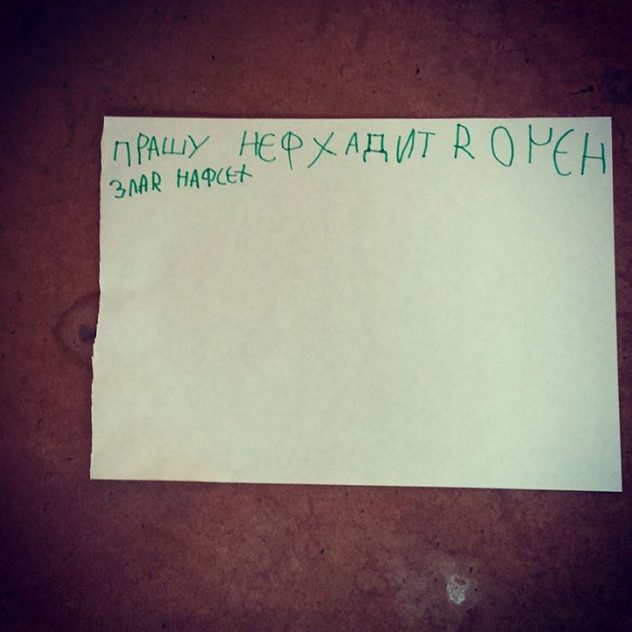 ПРАШУ НЕФХАДИТ ЯОЧЕН
ЗЛАЯ НАФСЕХ